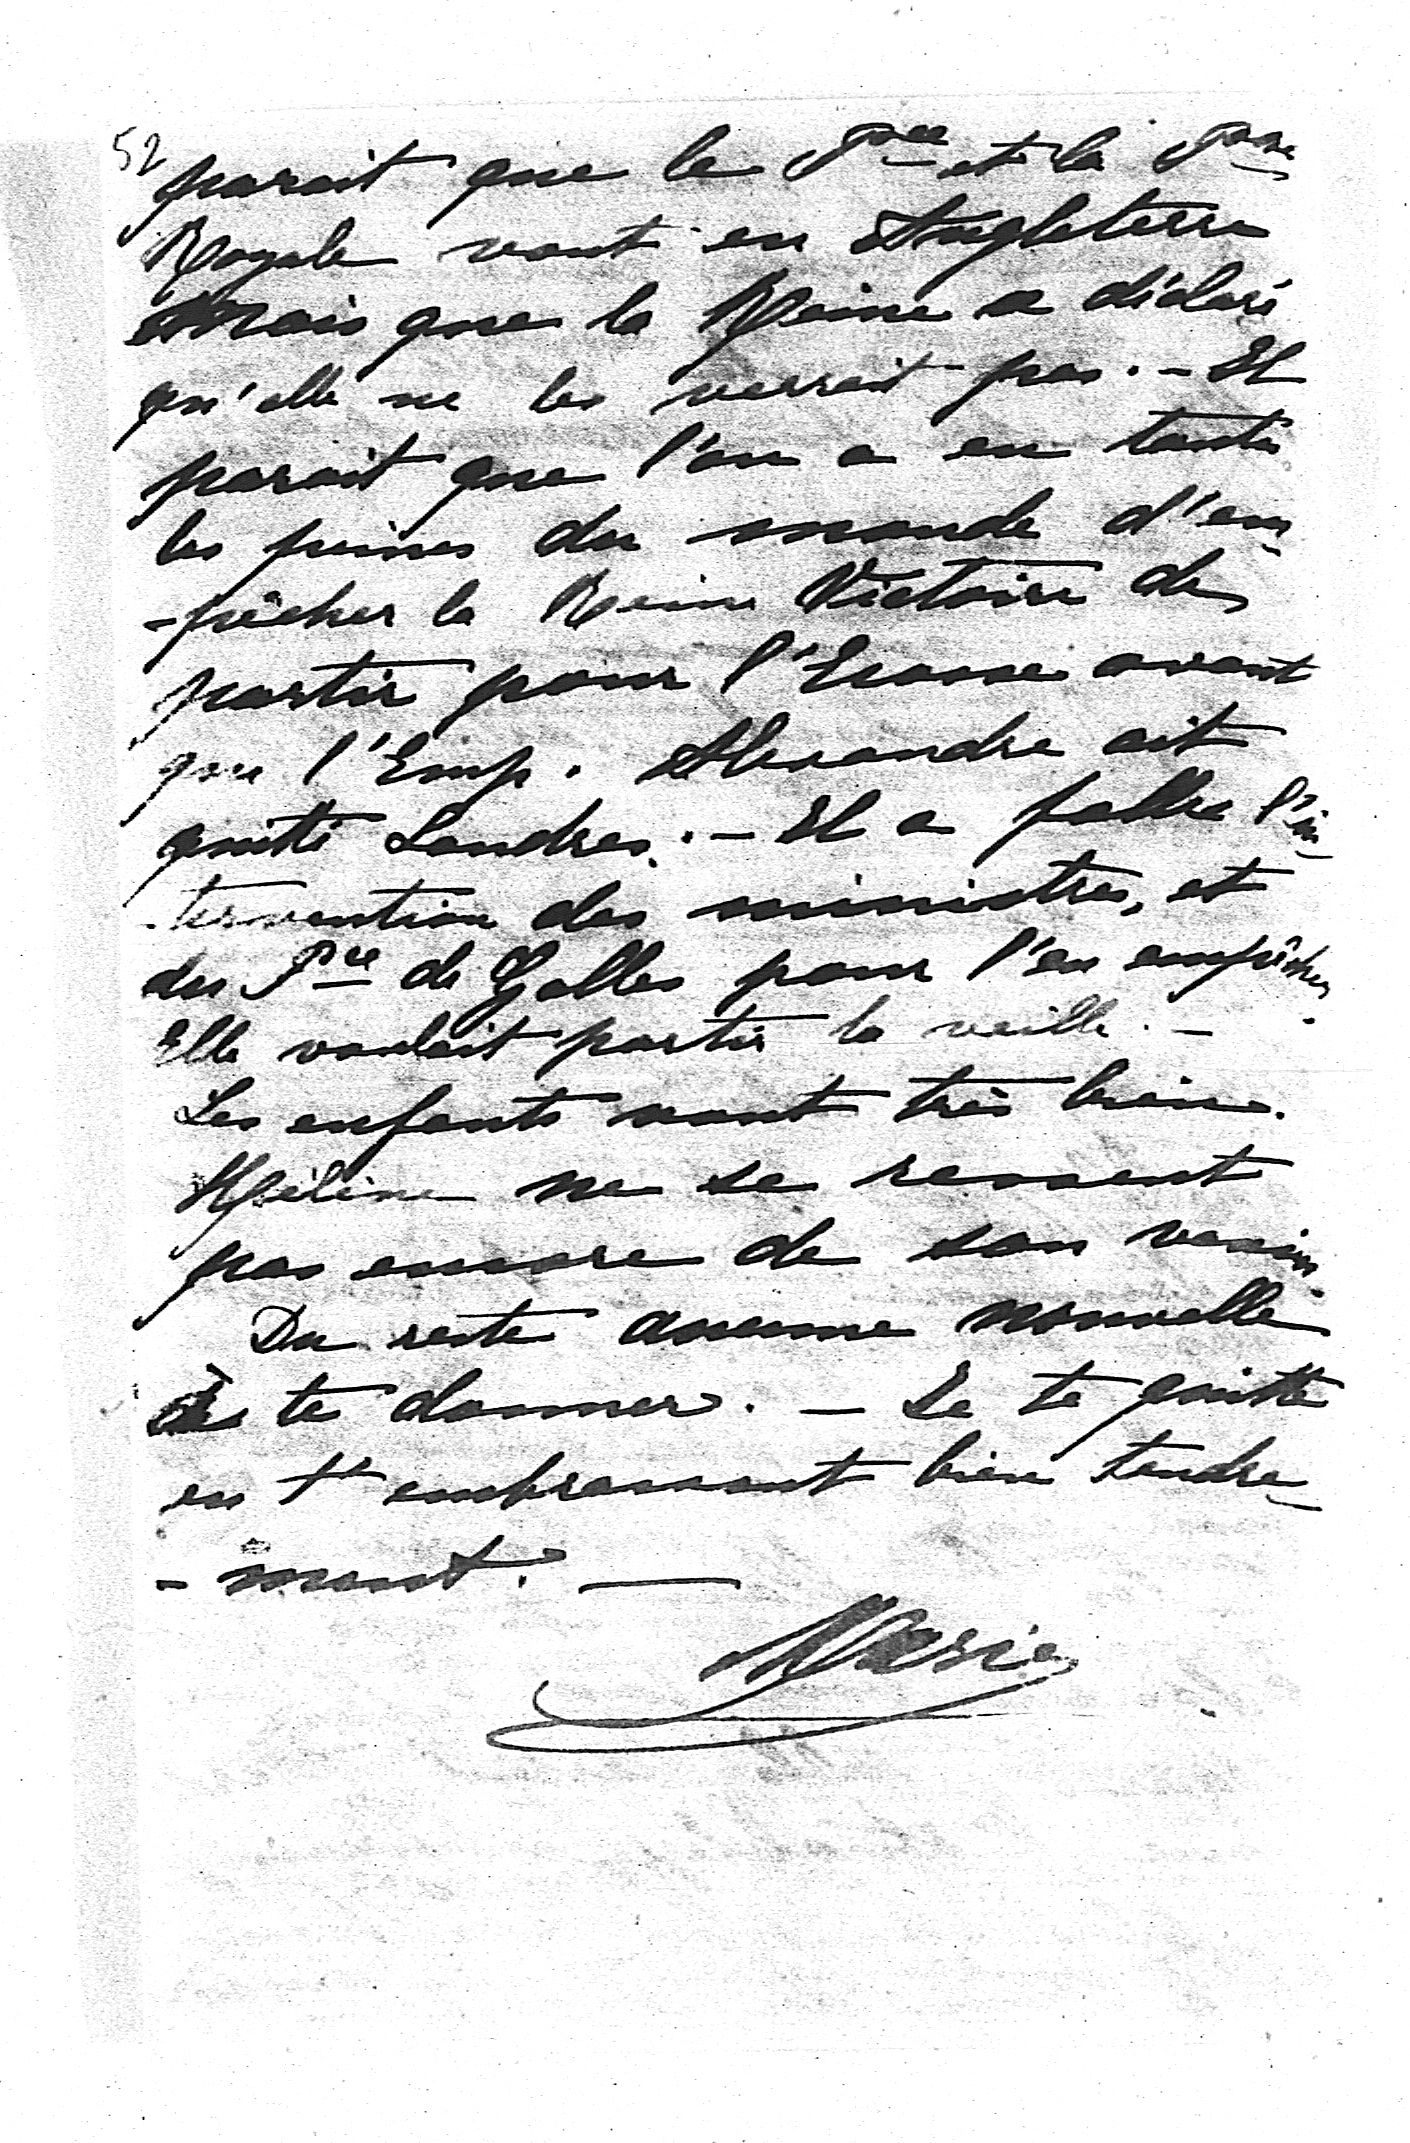 52
parait que le Pce et la Psse
Royale vont en Angleterre
Mais que la Reine a déclaré
qu'elle ne les verrait pas. - Il
parait que l'on a eu toutes
les peines du monde d'em
-pêcher la Reine Victoire de
partir pour l'Ecosse avant
que l'Emp. Alexandre ait
quitté Londres. - Il a fallu l'in-
-tervention des ministres, et
du Pce de Galles pour l'en empêcher.
Elle voulait partir la veille. -
Les enfants vont très bien.
Hélène ne se ressent
pas encore de son vaccin.
Du reste aucune nouvelle
à te donner. - Je te quitte
en t'embrassant bien tendre-
- ment. -
Marie